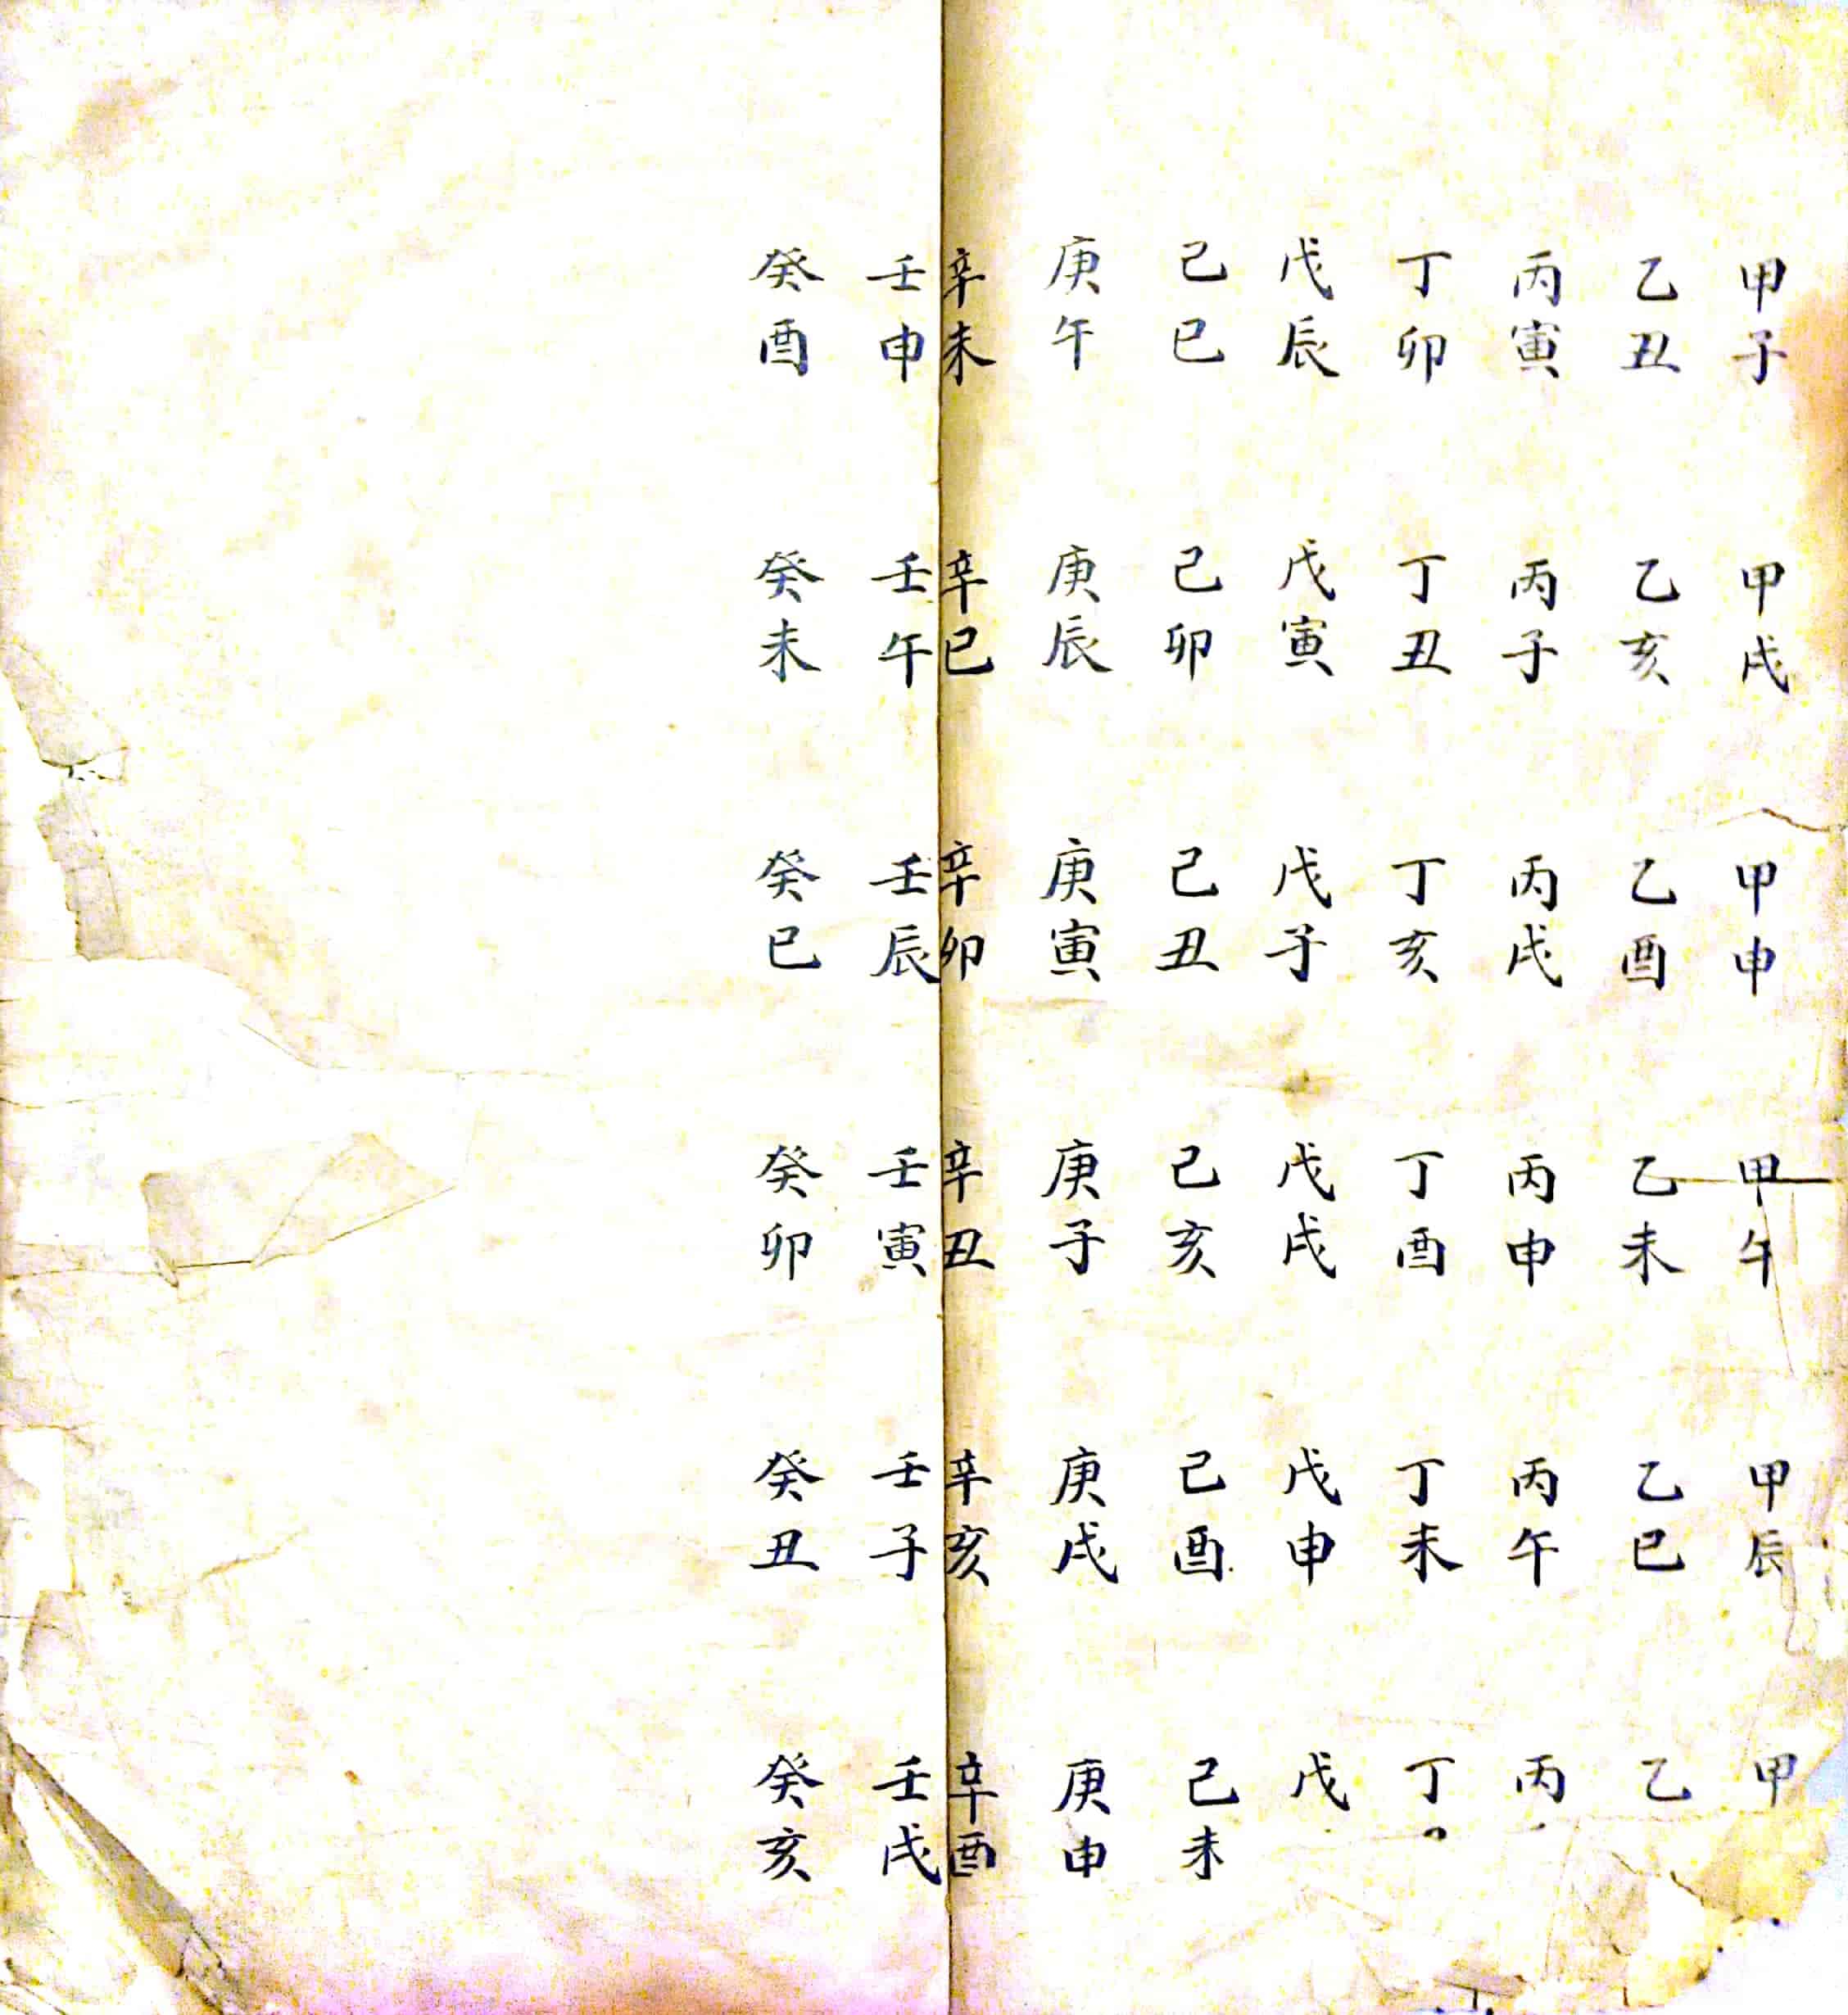 甲子 乙丑 丙寅 丁卯 戊辰 己巳 庚午 辛未 壬申 癸酉
甲戌 乙亥 丙子 丁丑 戊寅 己卯 庚辰 辛巳 壬午 癸未
甲申 乙酉 丙戌 丁亥 戊子 己丑 庚寅 辛卯 壬辰 癸巳
甲午 乙未 丙申 丁酉 戊戌 己亥 庚子 辛丑 壬寅 癸卯
甲辰 乙巳 丙午 丁未 戊申 己酉 庚戌 辛亥 壬子 癸丑
甲 乙 丙 丁 戊 己未 庚申 辛酉 壬戌 癸亥